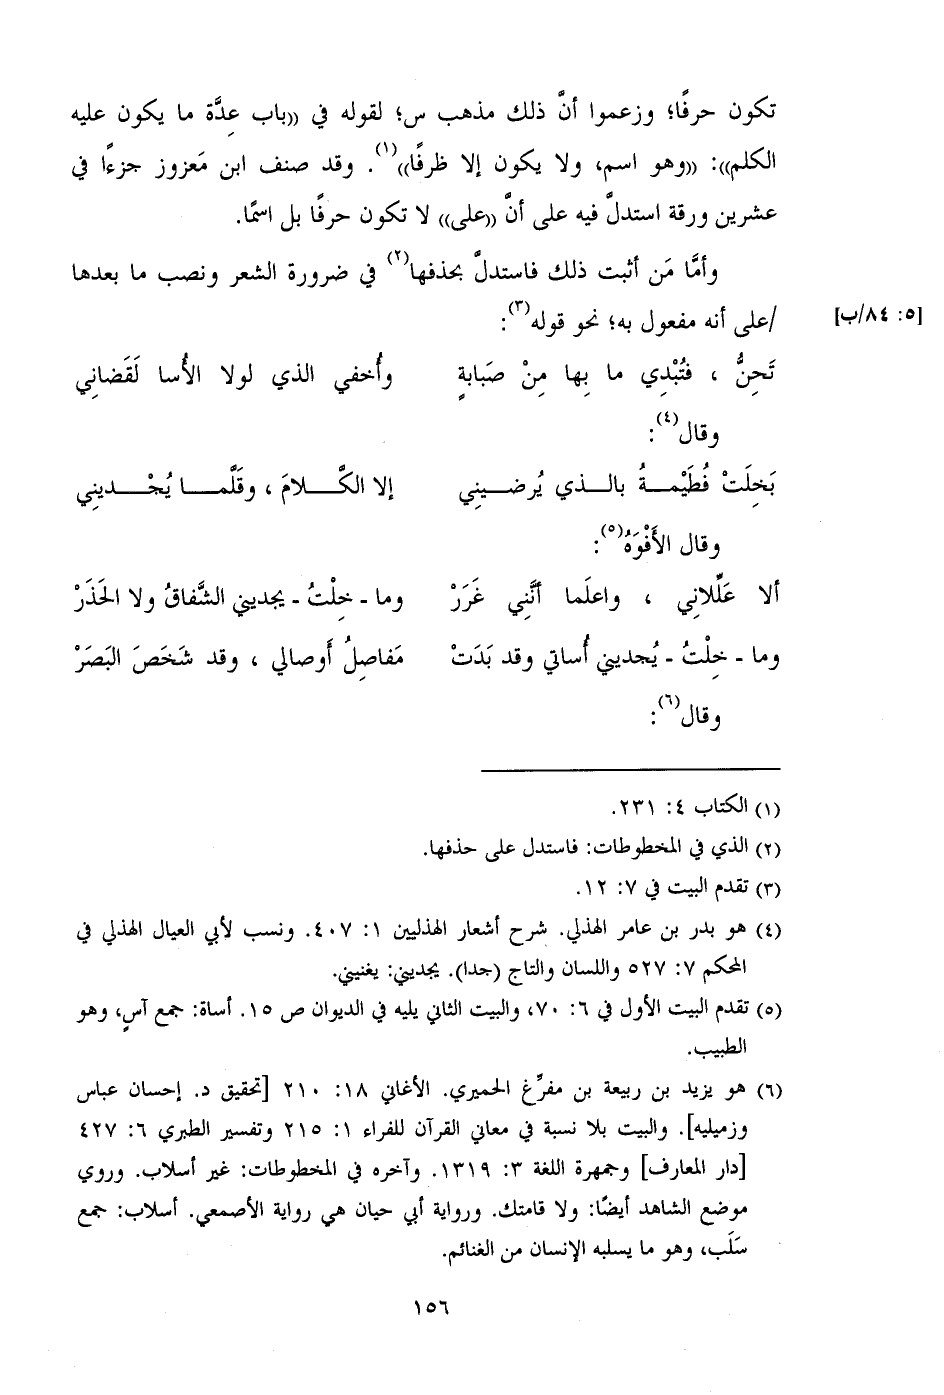 تكون حرفًا؛ وزعموا أنَّ ذلك مذهب س؛ لقوله في ((باب عِدَّة ما يكون عليه
الكلم)): ((وهو اسم، ولا يكون إلا ظرفًا))(١). وقد صنف ابن مَعزوز جزءًا في
عشرين ورقة استدلَّ فيه على أنَّ ((على)) لا تكون حرفًا بل اسمًا.
وأمَّا مَن أثبت ذلك فاستدلَّ بحذفها(٢) في ضرورة الشعر ونصب ما بعدها
/على أنه مفعول به؛ نحو قوله(٣): [٥: ٨٤/ب]
تَحِنُّ ، فتُبْدِي ما بِها مِنْ صَبابةٍ وأُخفي الذي لولا الأُسا لَقَضاني
وقال(٤):
بَخِلَتْ فُطَيْمـــةُ بالـــذي يُرضـــيني إلا الكَّـــلامَ ، وقَلَّمـــا يُجْـــديني
وقال الأَفْوَهُ(٥):
ألا عَلِّلاني ، واعلَما أنَّني غَرَرْ وما - خِلْتُ - يجديني الشَّفاقُ ولا الحَذَرْ
وما - خِلْتُ - يُجديني أُساتي وقد بَدَتْ مَفاصِلُ أَوصالي ، وقد شَخَصَ البَصَرْ
وقال(٦):
(١) الكتاب ٤: ٢٣١.
(٢) الذي في المخطوطات: فاستدل على حذفها.
(٣) تقدم البيت في ٧: ١٢.
(٤) هو بدر بن عامر الهذلي. شرح أشعار الهذليين ١: ٤٠٧. ونسب لأبي العيال الهذلي في
المحكم ٧: ٥٢٧ واللسان والتاج (جدا). يجديني: يغنيني.
(٥) تقدم البيت الأول في ٦: ٧٠، والبيت الثاني يليه في الديوان ص ١٥. أساة: جمع آسٍ، وهو
الطبيب.
(٦) هو يزيد بن ربيعة بن مفرِّغ الحميري. الأغاني ١٨: ٢١٠ [تحقيق د. إحسان عباس
وزميليه]. والبيت بلا نسبة في معاني القرآن للفراء ١: ٢١٥ وتفسير الطبري ٦: ٤٢٧
[دار المعارف] وجمهرة اللغة ٣: ١٣١٩. وآخره في المخطوطات: غير أسلاب. وروي
موضع الشاهد أيضًا: ولا قامتك. ورواية أبي حيان هي رواية الأصمعي. أسلاب: جمع
سَلَب، وهو ما يسلبه الإنسان من الغنائم.
١٥٦